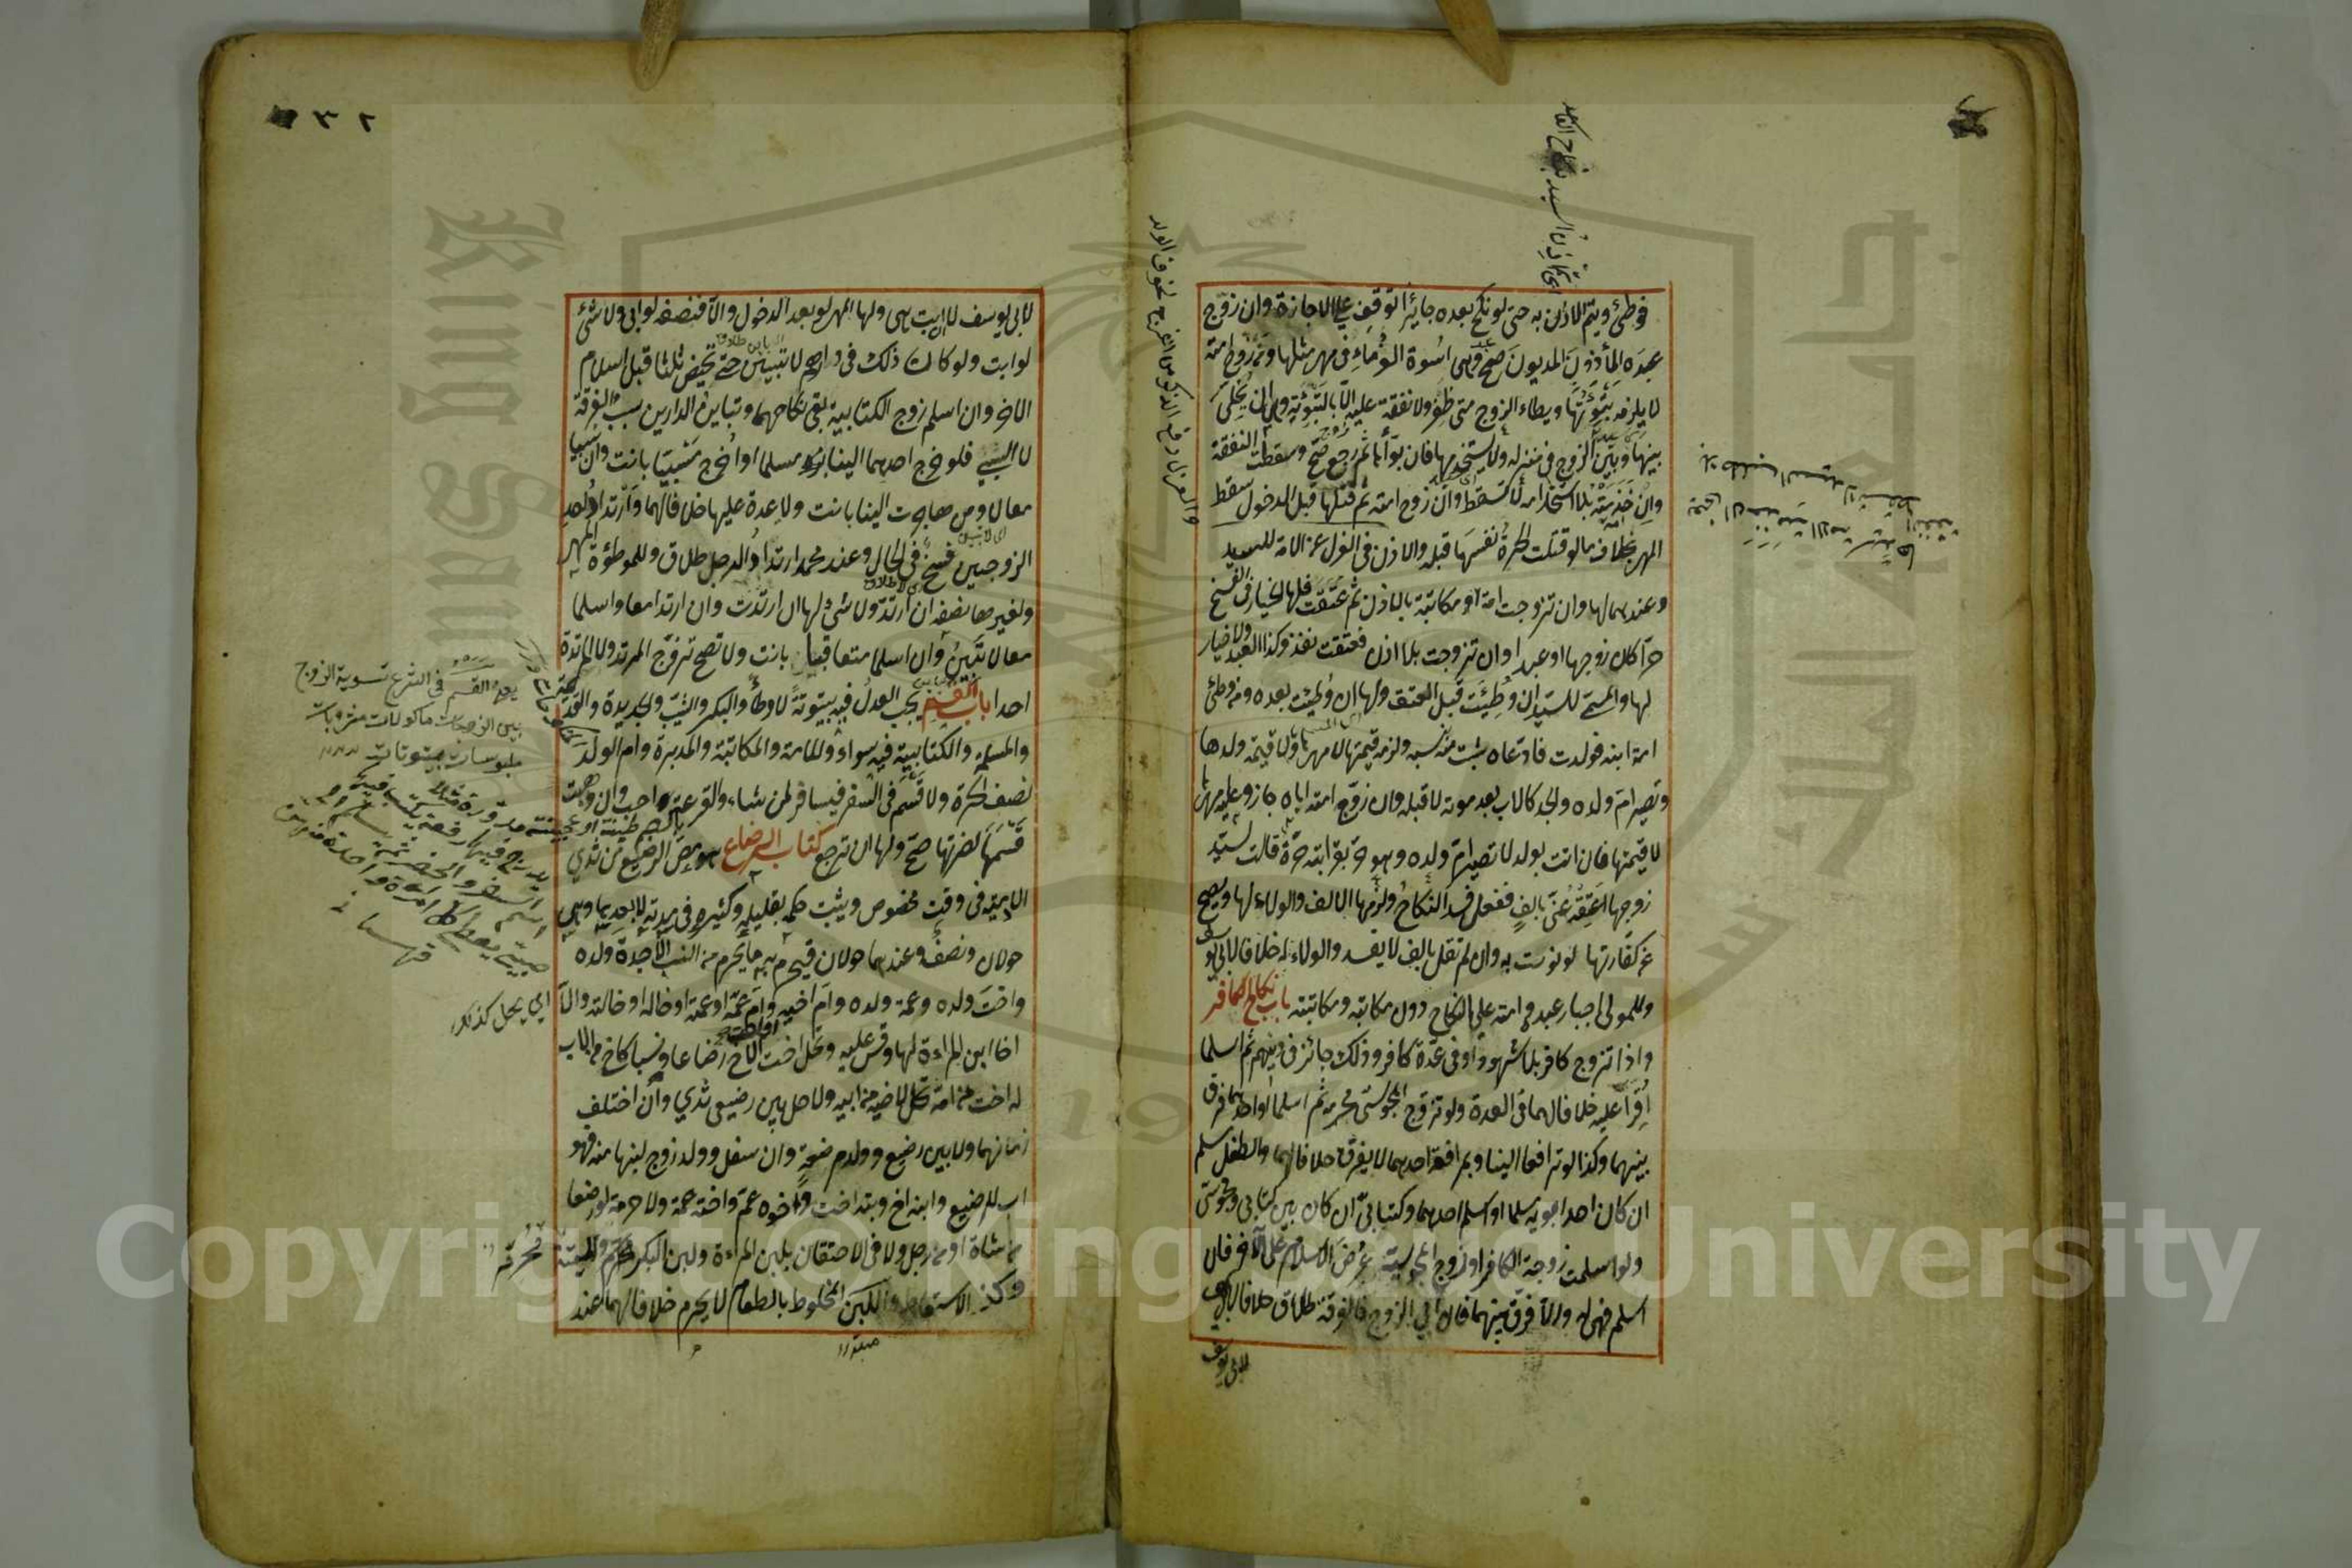 فوطئ ويتم الاذن به حتى لو نكح بعده جايزا توقف على الاجازة وان زوج
عبده المأذون المديون صح وهى اسوة الغرماء فى مهر مثلها ومن زوج امته
لا يلزمه تبوئتها ويطاء الزوج متى ظفر ولا نفقة عليه الا بالتبوئة وهى ان يخلى
بينها وبين الزوج فى منزله ولا يستخدمها فان بوأها ثم رجع صح وسقطت النفقة
وان خدمته بلا استخدامه لا تسقط وان زوج امته ثم قتلها قبل الدخول سقط
المهر بخلاف ما لو قتلت الحرة نفسها قبله والاذن فى العزل عن الامة للسيد
وعندهما لها وان تزوجت امة او مكاتبة بالاذن ثم عتقت فلها الخيار فى الفسخ
حرا كان زوجها او عبدا وان تزوجت بلا اذن فعتقت نفذ وكذا العبد ولا خيار
لها والمسمى للسيد ان وطئت قبل العتق ولها ان وطئت بعده ومن وطئ
امة ابنه فولدت فادعاه يثبت نسبه ولزمه قيمتها لا مهرها ولا قيمة ولدها
وتصير ام ولده والجد كالاب بعد موته لا قبله وان زوج امته اباه جاز وعليه مهرها
لا قيمتها فان اتت بولد لا تصير ام ولده وهو حر بقرابته حرة قالت لسيد
زوجها اعتقه عنى بالف ففعل فسد النكاح ولزمها الالف والولاء لها ويصح
عن كفارتها لو نوت به وان لم تقل بالف لا يفسد والولاء له خلافا لابى يوسف
وللمولى اجبار عبده وامته على النكاح دون مكاتبه ومكاتبته باب نكاح الكافر
واذا تزوج كافر بلا شهود او فى عدة كافر وذلك جائز فى دينهم ثم اسلما
اقرا عليه خلافا لهما فى العدة ولو تزوج المجوسى محرمه ثم اسلما او احدهما فرق
بينهما وكذا لو ترافعا الينا وبمرافعة احدهما لا يفرق خلافا لهما والطفل مسلم
ان كان احد ابويه مسلما او اسلم احدهما وكتابى ان كان بين كتابى ومجوسى
ولو اسلمت زوجة الكافر او زوج المجوسية عرض الاسلام على الآخر فان
اسلم فهى له والا فرق بينهما فان ابى الزوج فالفرقة طلاق خلافا لابى يوسف
لابى يوسف
والعزل رفع الذكر من الفرج لخوف الولد
٢ ٣
لابى يوسف لا ان ابت هى ولها المهر لو بعد الدخول والا فنصفه لو ابى ولا شئ
لو ابت ولو كان ذلك فى دارهم لا تبين حتى تحيض ثلثا قبل اسلام
الاخر وان اسلم زوج الكتابية بقى نكاحهما وتباين الدارين سبب الفرقة
لا السبى فلو خرج احدهما الينا مسلما او اخرج مسبيا بانت وان سبيا
معا لا ومن هاجرت الينا بانت ولا عدة عليها خلافا لهما وارتداد احد
الزوجين فسخ فى الحال وعند محمد ارتداد الرجل طلاق وللموطؤة المهر
ولغيرها نصفه ان ارتد ولا شئ لها ان ارتدت وان ارتدا معا واسلما
معا لا تبين وان اسلما متعاقبا بانت ولا تصح تزوج المرتد ولا المرتدة
احدا باب القسم يجب العدل فيه بيتوتة لا وطأ والبكر والثيب والجديدة والقديمة
والمسلمة والكتابية فيه سواء وللامة والمكاتبة والمدبرة وام الولد
نصف الحرة ولا قسم فى السفر فيسافر بمن شاء والقرعة احب وان وهبت
قسمها لضرتها صح ولها ان ترجع كتاب الرضاع هو مص الرضيع من ثدى
الادمية فى وقت مخصوص ويثبت حكمه بقليله وكثيره فى مدته لا بعدها وهى
حولان ونصف وعندهما حولان فيحرم به ما يحرم من النسب الا جدة ولده
واخت ولده وعمة ولده وام اخيه وام عمه او عمته او خاله او خالته والا
اخا ابن المراءة لها وقس عليه وتحل اخت الاخ رضاعا ونسبا كاخ من الاب
له اخت من امه تحل لاخيه من ابيه ولا حل بين رضيعى ثدي وان اختلف
زمانهما ولا بين رضيع وولد مرضعته وان سفل وولد زوج لبنها منه فهو
اب للرضيع وابنه اخ وبنته اخت واخوه عم واخته عمة ولا حرمة لو رضعا
من شاة او من رجل ولا فى الاحتقان بلبن المراءة ولبن البكر محرم والميتة
وكذا الاستعاط واللبن المخلوط بالطعام لا يحرم خلافا لهما عند
القسم فى الشرع تسوية الزوج
بين الزوجات ماكولات مشروبات
ملبوسات بيتوتات
اي يحل كذلك